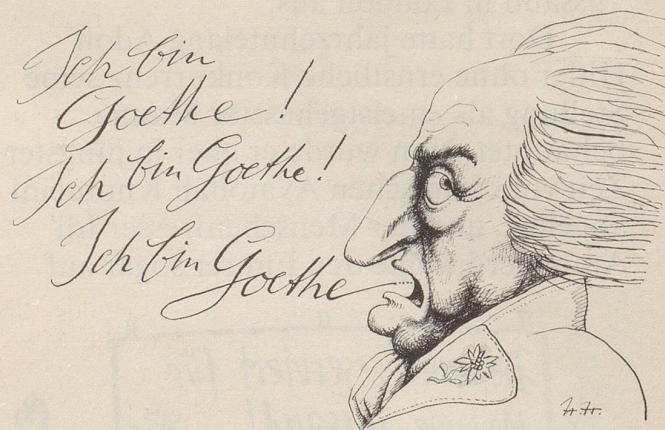 Ich bin
Goethe!
Ich bin Goethe!
Ich bin Goethe